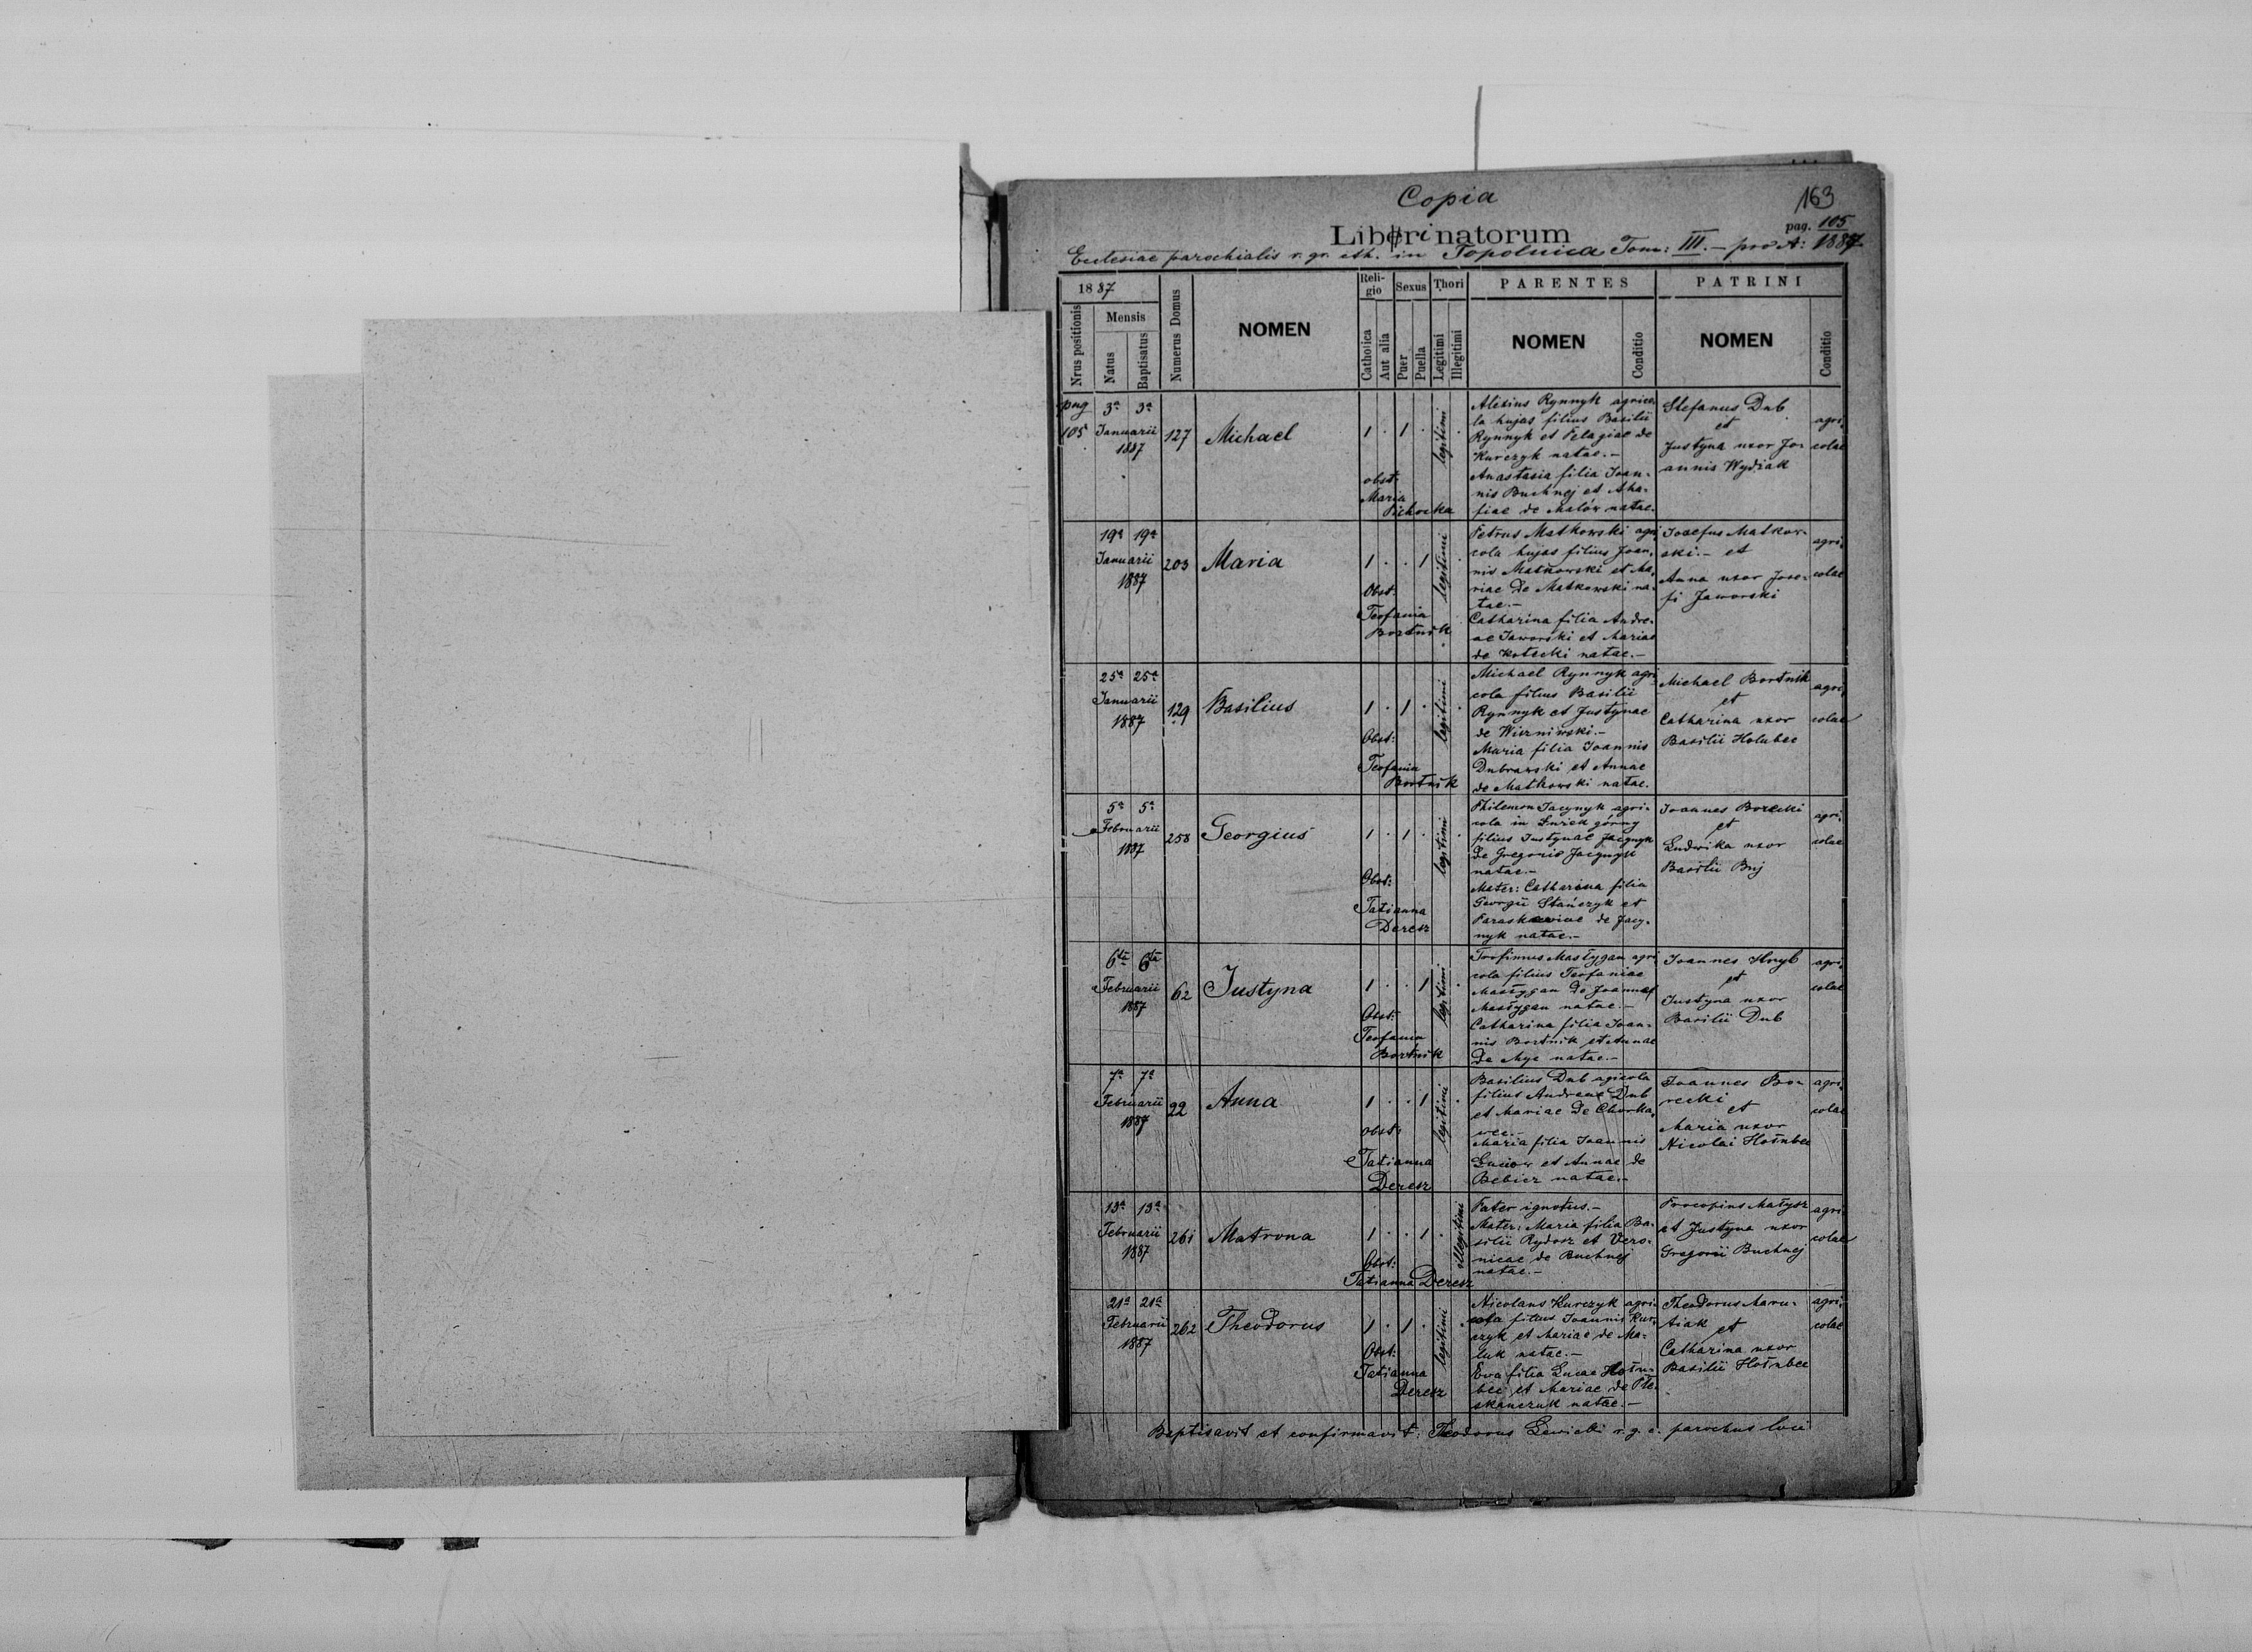 Copia
163
Libri natorum
pag. 105
Ecclesiae parochialis r. gr. cth. in Topolnica Tom: III. — pro A: 1887
1887
Nrus positionis
Mensis
Natus
Baptisatus
Numerus Domus
NOMEN
Religio
Catholica
Aut alia
Sexus
Puer
Puella
Thori
Legitimi
Illegitimi
PARENTES
NOMEN
Conditio
PATRINI
NOMEN
Conditio
pag
105
3a 3a
Januarii
1887
127
Michael
1 . 1 . legitimi .
obst:
Maria
Alexius Rynnyk agrico-
la hujas filius Basilii
Rynnyk et Pelagiae de
Kurczyk natae.—
Anastasia filia Joan-
nis Buchnej et Aha-
fiae de Malów natae.
Stefanus Dub
et
Justyna uxor Jo-
annis Wydiak
agri-
colae
19a 19a
Januarii
1887
203
Maria
1 . . 1 legitimi .
Obst:
Teofania
Bortnik
Petrus Matkowski agri-
cola hujas filius Joan-
nis Matkowski et Ma-
riae de Matkowski na-
tae.—
Catharina filia Andre-
ae Jaworski et Mariae
de Kotecki natae.—
Josefus Matkow-
ski.— et
Anna uxor Jose-
fi Jaworski
agri-
colae
25a 25a
Januarii
1887
129
Basilius
1 . 1 . legitimi .
Obst:
Teofania
Bortnik
Michael Rynnyk agri-
cola filius Basilii
Rynnyk et Justynae
de
Maria filia Joannis
Dubrawski et Annae
de Matkowski natae.
Michael Bortnik
et
Catharina uxor
Basilii Holubec
agri-
colae
5a 5a
Februarii
1887
258
Georgius
1 . 1 . legitimi .
Obst:
Tatianna
Deresz
Philemon Jacynyk agri-
cola in górny
filius Justynae Jacynyk
de Gregorio Jacynyk
natae.—
Mater: Catharina filia
Georgii Stańczyk et
Paraskewiae de Jacy-
nyk natae.—
Joannes Borecki
et
Ludwika uxor
Basilii Buj
agri-
colae
6ta 6ta
Februarii
1887
62
Justyna
1 . . 1 legitimi .
Obst:
Teofania
Bortnik
Trofimus Mastygan agri-
cola filius Teofaniae
Mastygan de Joannae
Mastygan natae.—
Catharina filia Joan-
nis Bortnik et Annae
de natae.—
Joannes Hryb
et
Justyna uxor
Basilii Dub
agri-
colae
7a 7a
Februarii
1887
22
Anna
1 . . 1 legitimi .
obst:
Tatianna
Deresz
Basilius Dub agricola
filius Andreae Dub
et Mariae de
Maria filia Joannis
et Annae de
Bebicz natae.—
Joannes Bo-
recki
et
Maria uxor
Nicolai Hołubec
agri-
colae
13a 13a
Februarii
1887
261
Matrona
1 . . 1 . illegitimi
Obst:
Tatianna Deresz
Pater ignotus.—
Mater: Maria filia Ba-
silii Rydosz et Vero-
nicae de Buchnej
natae.—
Procopius Matysz
et Justyna uxor
Gregorii Buchnej
agri-
colae
21a 21a
Februarii
1887
262
Theodorus
1 . 1 . legitimi .
Obst:
Tatianna
Deresz
Nicolaus Kurczyk agri-
cola filius Joannis Kur-
czyk et Mariae de Ma-
luk natae.—
Eva filia Lucae Hołu-
bec et Mariae de Ple-
skanczuk natae.—
Theodorus Maru-
tiak et
Catharina uxor
Basilii Hołubec
agri-
colae
Baptisavit et confirmavit: Theodorus Lewicki r. g. c. parochus loci